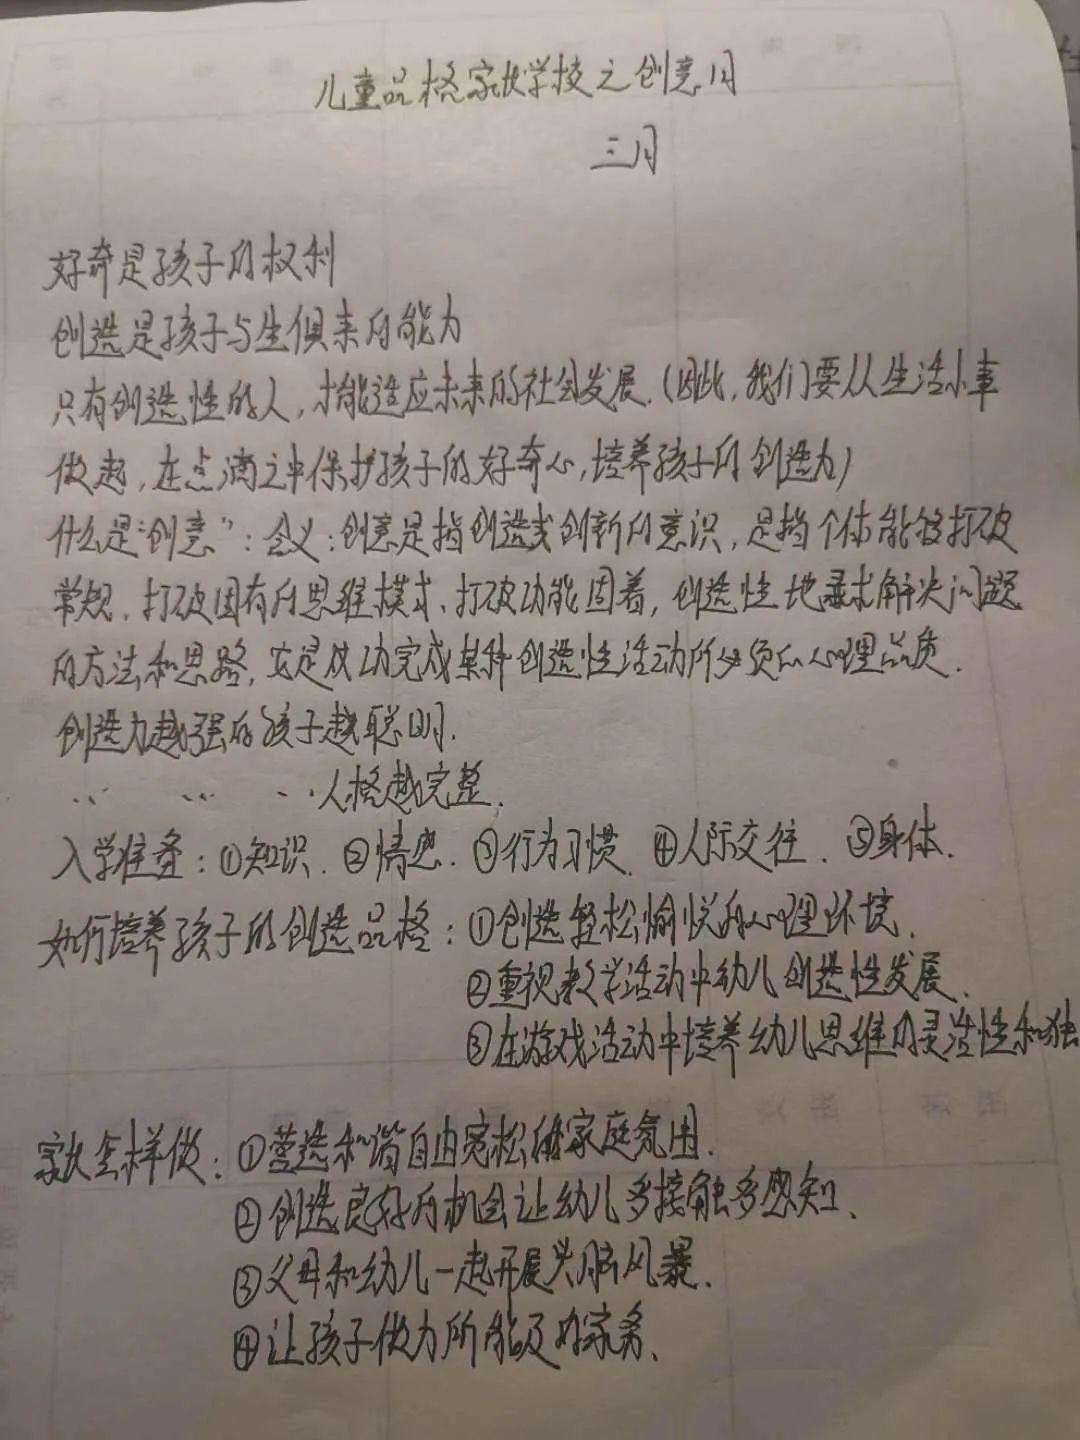 儿童品格家长学校之创意月
三月
好奇是孩子的权利
创造是孩子与生俱来的能力
只有创造性的人，才能适应未来的社会发展.(因此，我们要从生活小事
做起，在点滴之中保护孩子的好奇心，培养孩子的创造力)
什么是“创意”：含义：创意是指创造或创新的意识，是指个体能够打破
常规、打破固有的思维模式、打破功能固着，创造性地寻求解决问题
的方法和思路，它是成功完成某种创造性活动所必须的心理品质.
创造力越强的孩子越聪明.
〃 〃 〃人格越完整.
入学准备：①知识.②情感.③行为习惯.④人际交往.⑤身体.
如何培养孩子的创造品格：①创造轻松愉悦的心理环境.
②重视教学活动中幼儿创造性发展.
③在游戏活动中培养幼儿思维的灵活性和独
家长怎样做：①营造和谐自由宽松的家庭氛围.
②创造良好的机会让幼儿多接触多感知.
③父母和幼儿一起开展头脑风暴.
④让孩子做力所能及的家务.